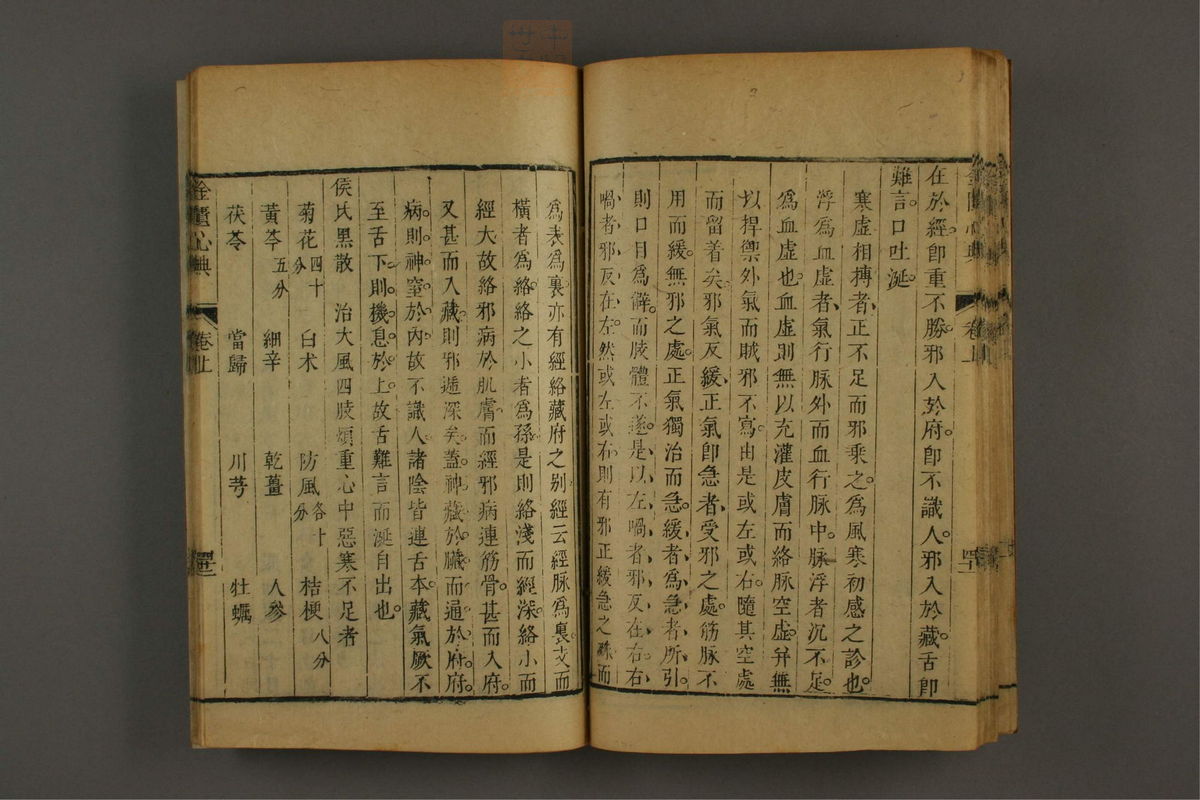 在於經卽重不勝邪入於府卽不識人邪入於藏舌卽
難言口吐涎
寒虛相搏者正不足而邪乘之爲風寒初感之診也
浮爲血虛者氣行脉外而血行脉中脉浮者沉不足
爲血虛也血虛則無以充灌皮膚而絡脉空虛幷無
以捍禦外氣而賊邪不寫由是或左或右隨其空處
而留着矣邪氣反緩正氣卽急者受邪之處筋脉不
用而緩無邪之處正氣獨治而急緩者爲急者所引
則口目爲僻而肢體不遂是以左喎者邪反在右右
喎者邪反在左然或左或右則有邪正緩急之殊而
爲表爲裏亦有經絡藏府之别經云經脉爲裏支而
橫者爲絡絡之小者爲孫是則絡淺而經深絡小而
經大故絡邪病於肌膚而經邪病連筋骨甚而入府
又甚而入藏則邪遞深矣蓋神藏於臟而通於府府
病則神窒於內故不識人諸陰皆連舌本藏氣厥不
至舌下則機息於上故舌難言而涎自出也
侯氏黑散 治大風四肢煩重心中惡寒不足者
菊花四十分 白术 防風各十分 桔梗八分
黃芩五分 細辛 乾薑 人參
茯苓 當歸 川芎 牡蠣
金匱心典 卷上